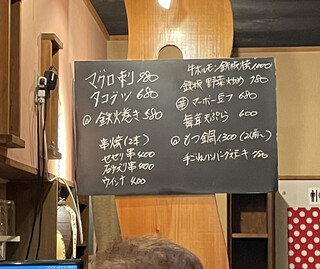 マグロ刺 580
タコブツ 680
鉄火巻き 580
串焼(2本)
せせり串 400
串 400
ウインナ 400
牛ホルモン鉄板焼 1,000
鉄板 野菜炒め 780
マーボー豆フ 680
舞茸天ぷら 600
もつ鍋 1,300 (2人前〜)
手ごねハンバーグステーキ 780